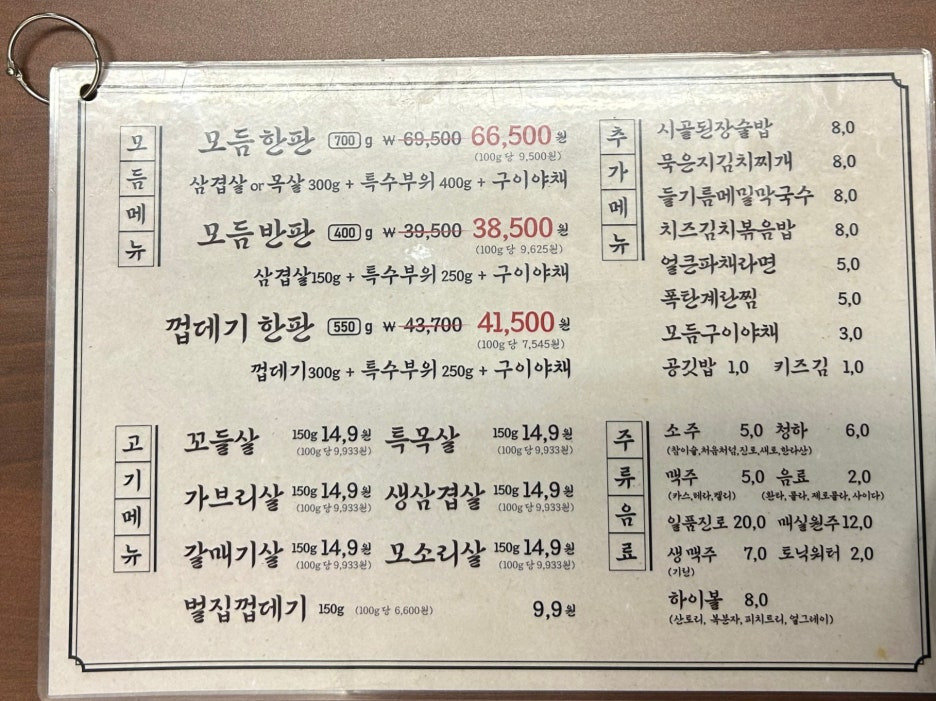 모듬메뉴
모듬한판 700 g ₩ 69,500 66,500원
(100g 당 9,500원)
삼겹살 or 목살 300g + 특수부위 400g + 구이야채
모듬반판 400 g ₩ 39,500 38,500원
(100g 당 9,625원)
삼겹살150g + 특수부위 250g + 구이야채
껍데기 한판 550 g ₩ 43,700 41,500원
(100g 당 7,545원)
껍데기300g + 특수부위 250g + 구이야채
고기메뉴
꼬들살 150g 14,9원 특목살 150g 14,9원
(100g 당 9,933원) (100g 당 9,933원)
가브리살 150g 14,9원 생삼겹살 150g 14,9원
(100g 당 9,933원) (100g 당 9,933원)
갈매기살 150g 14,9원 모소리살 150g 14,9원
(100g 당 9,933원) (100g 당 9,933원)
벌집껍데기 150g (100g 당 6,600원) 9,9원
추가메뉴
시골된장술밥 8,0
묵은지김치찌개 8,0
들기름메밀막국수 8,0
치즈김치볶음밥 8,0
얼큰파채라면 5,0
폭탄계란찜 5,0
모듬구이야채 3,0
공깃밥 1,0 키즈김 1,0
주류음료
소주 5,0 청하 6,0
(참이슬,처음처럼,진로,새로,한라산)
맥주 5,0 음료 2,0
(카스,테라,켈리) (환타, 콜라, 제로콜라, 사이다)
일품진로 20,0 매실원주 12,0
생맥주 7,0 토닉워터 2,0
(기린)
하이볼 8,0
(산토리, 복분자, 피치트리, 얼그레이)